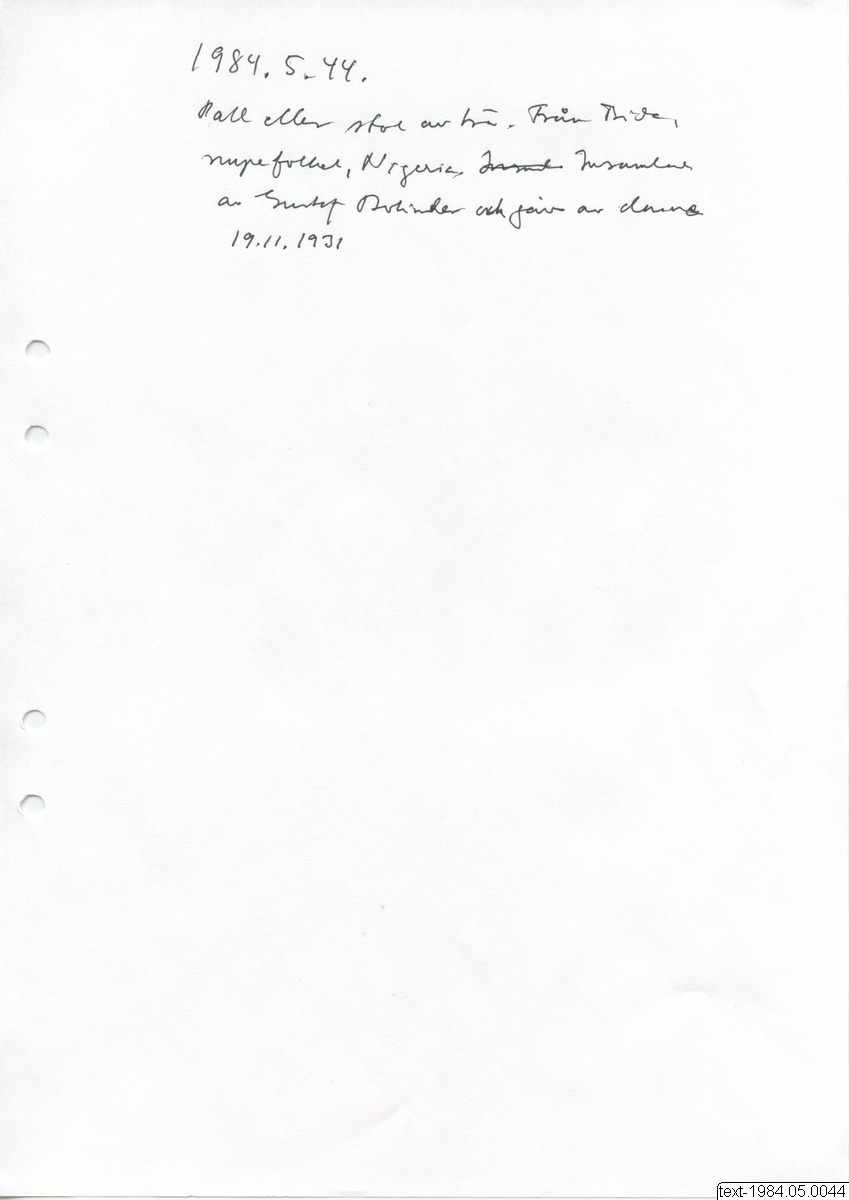 1984.5.44.
Pall eller stol av trä. Från Bida,
nupefolket, Nigeria, Insamlad
av Gustaf Bolinder och gåva av denne
19.11.1931
text-1984.05.0044